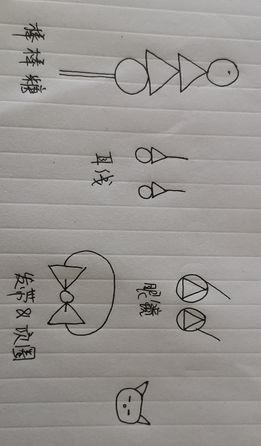 棒棒糖
耳线
眼镜
发带&项圈